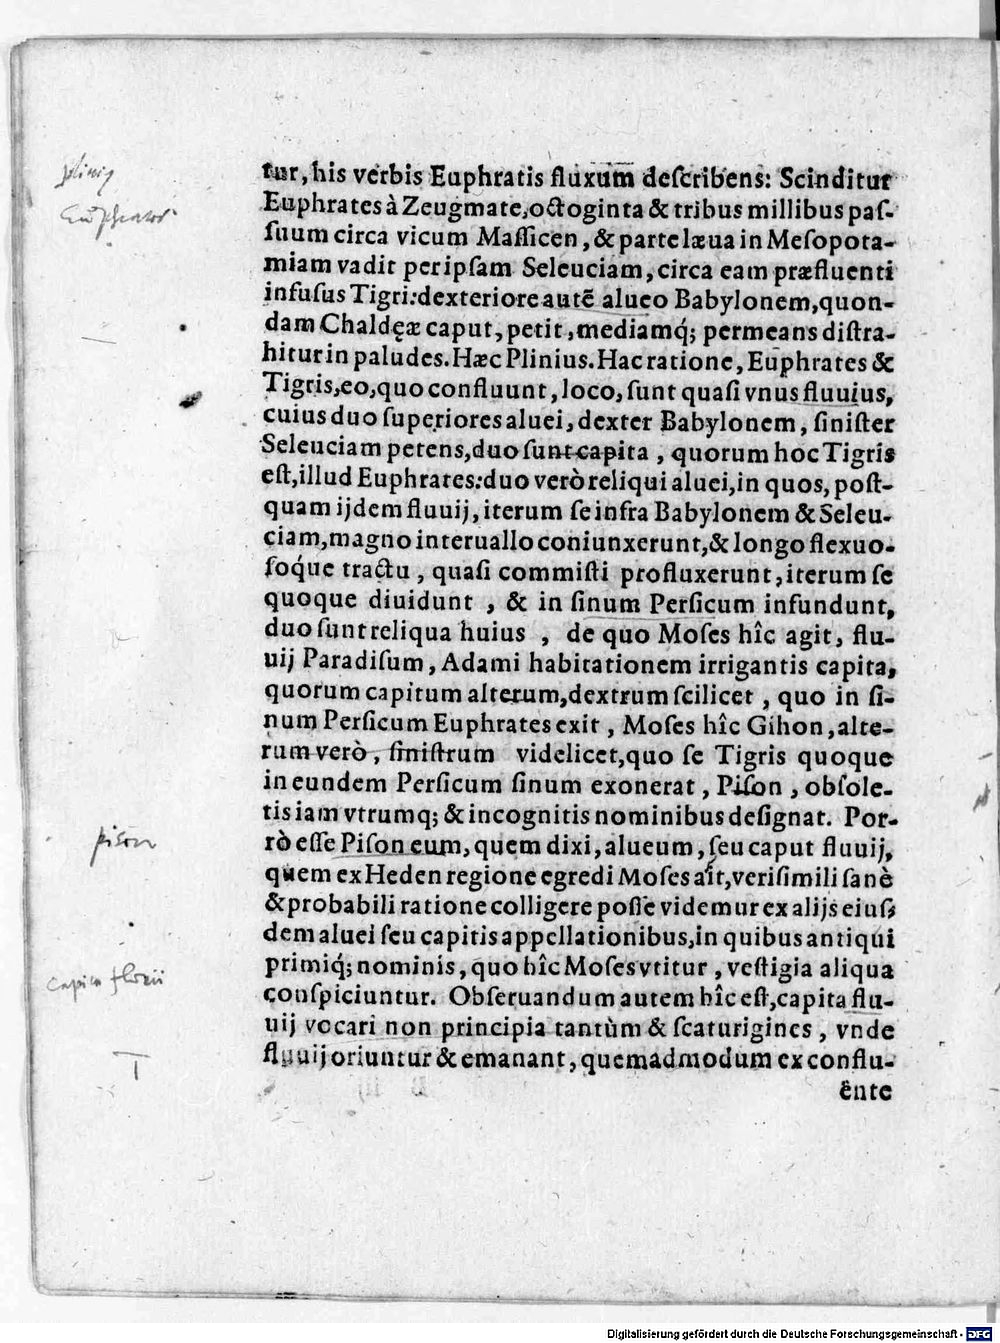 Plinius
Euphrates
tur, his verbis Euphratis fluxum deſcribens: Scinditur
Euphrates à Zeugmate, octoginta & tribus millibus paſ-
ſuum circa vicum Maſſicen, & parte læua in Meſopota-
miam vadit per ipſam Seleuciam, circa eam præfluenti
infuſus Tigri: dexteriore autē alueo Babylonem, quon-
dam Chaldęæ caput, petit, mediamq́; permeans diſtra-
hitur in paludes. Hæc Plinius. Hac ratione, Euphrates &
Tigris, eo, quo confluunt, loco, ſunt quaſi vnus fluuius,
cuius duo ſuperiores aluei, dexter Babylonem, ſiniſter
Seleuciam petens, duo ſunt capita, quorum hoc Tigris
eſt, illud Euphrates: duo verò reliqui aluei, in quos, poſt-
quam ijdem fluuij, iterum ſe infra Babylonem & Seleu-
ciam, magno interuallo coniunxerunt, & longo flexuo-
ſoq́ue tractu, quaſi commiſti profluxerunt, iterum ſe
quoque diuidunt, & in ſinum Perſicum infundunt,
duo ſunt reliqua huius, de quo Moſes hîc agit, flu-
uij Paradiſum, Adami habitationem irrigantis capita,
quorum capitum alterum, dextrum ſcilicet, quo in ſi-
num Perſicum Euphrates exit, Moſes hîc Gihon, alte-
rum verò, ſiniſtrum videlicet, quo ſe Tigris quoque
in eundem Perſicum ſinum exonerat, Piſon, obſole-
tis iam vtrumq; & incognitis nominibus deſignat. Por-
piſon
rò eſſe Piſon eum, quem dixi, alueum, ſeu caput fluuij,
quem ex Heden regione egredi Moſes ait, veriſimili ſanè
& probabili ratione colligere poſſe videmur ex alijs eiuſ-
dem aluei ſeu capitis appellationibus, in quibus antiqui
primiq́; nominis, quo hîc Moſes vtitur, veſtigia aliqua
capita fluuii
conſpiciuntur. Obſeruandum autem hîc eſt, capita flu-
uij vocari non principia tantùm & ſcaturigines, vnde
fluuij oriuntur & emanant, quemadmodum ex conflu-
ente
Digitalisierung gefördert durch die Deutsche Forschungsgemeinschaft - DFG